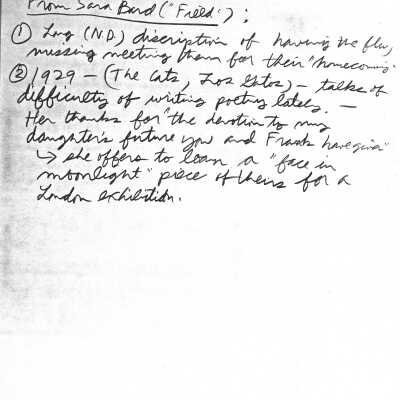 From Sara Bard ("Field"):
① Long (N.D.) discription of having the flu,
missing meeting them for their "homecoming"
② 1929 – (The Cats, Los Gatos) – talks of
difficulty of writing poetry lately. –
Her thanks for "the devotion to my
daughter's future you and Frank have given"
↳ she offers to loan a "face in
moonlight" piece of theirs for a
London exhibition.